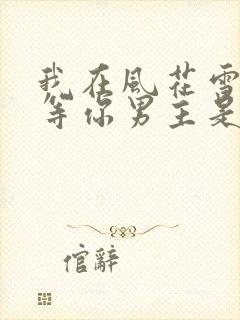 我在風花雪
等你男主是
倌辭